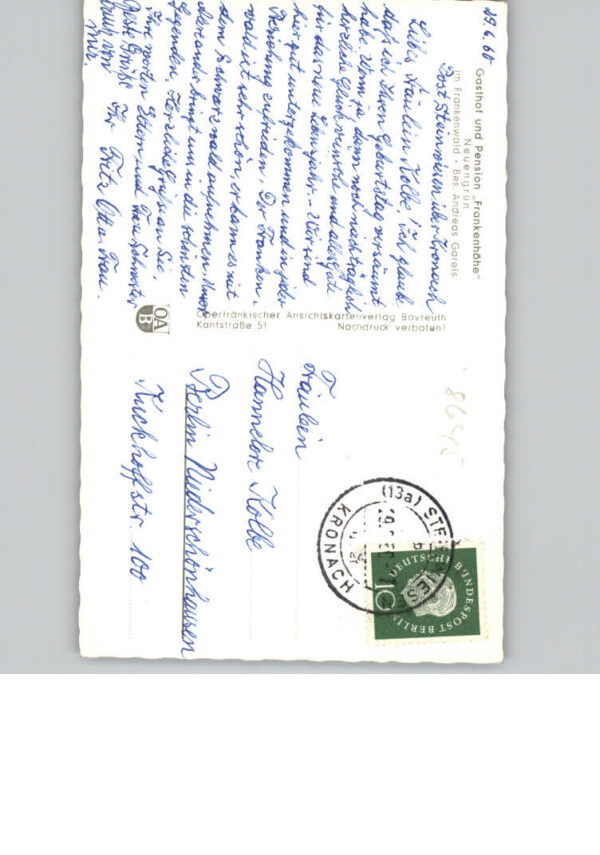 29.6.60
Gasthof und Pension „Frankenhöhe"
Neuengrün
im Frankenwald • Bes. Andreas Gareis
Post Steinwiesen über Kronach
Liebes Fräulein Kolbe! Ich glaube
daß ich Ihren Geburtstag versäumt
habe. Wenn ja dann noch nachträglich
herzliche Glückwünsche und alles gute
für das neue Lebensjahr. - Wir sind
hier gut untergekommen und in jeder
Beziehung zufrieden. Der Franken-
wald ist sehr schön, er kann es mit
dem Schwarzwald aufnehmen.
Alexander bringt uns in die schönsten
Gegenden. Herzliche Grüße an Sie,
Ihre werten Eltern und Frau Schwester
Ihr Fritz Otto. Frau.
Beste Grüße
auch von
mir,
Oberfränkischer Ansichtskartenverlag Bayreuth
Kantstraße 51 Nachdruck verboten!
OA
B
8645
(13a) STEINWIESEN
KRONACH
DEUTSCHE BUNDESPOST BERLIN
10
Fräulein
Hannelore Kolbe
Berlin Niederschönhausen
Kuckhoffstr 100